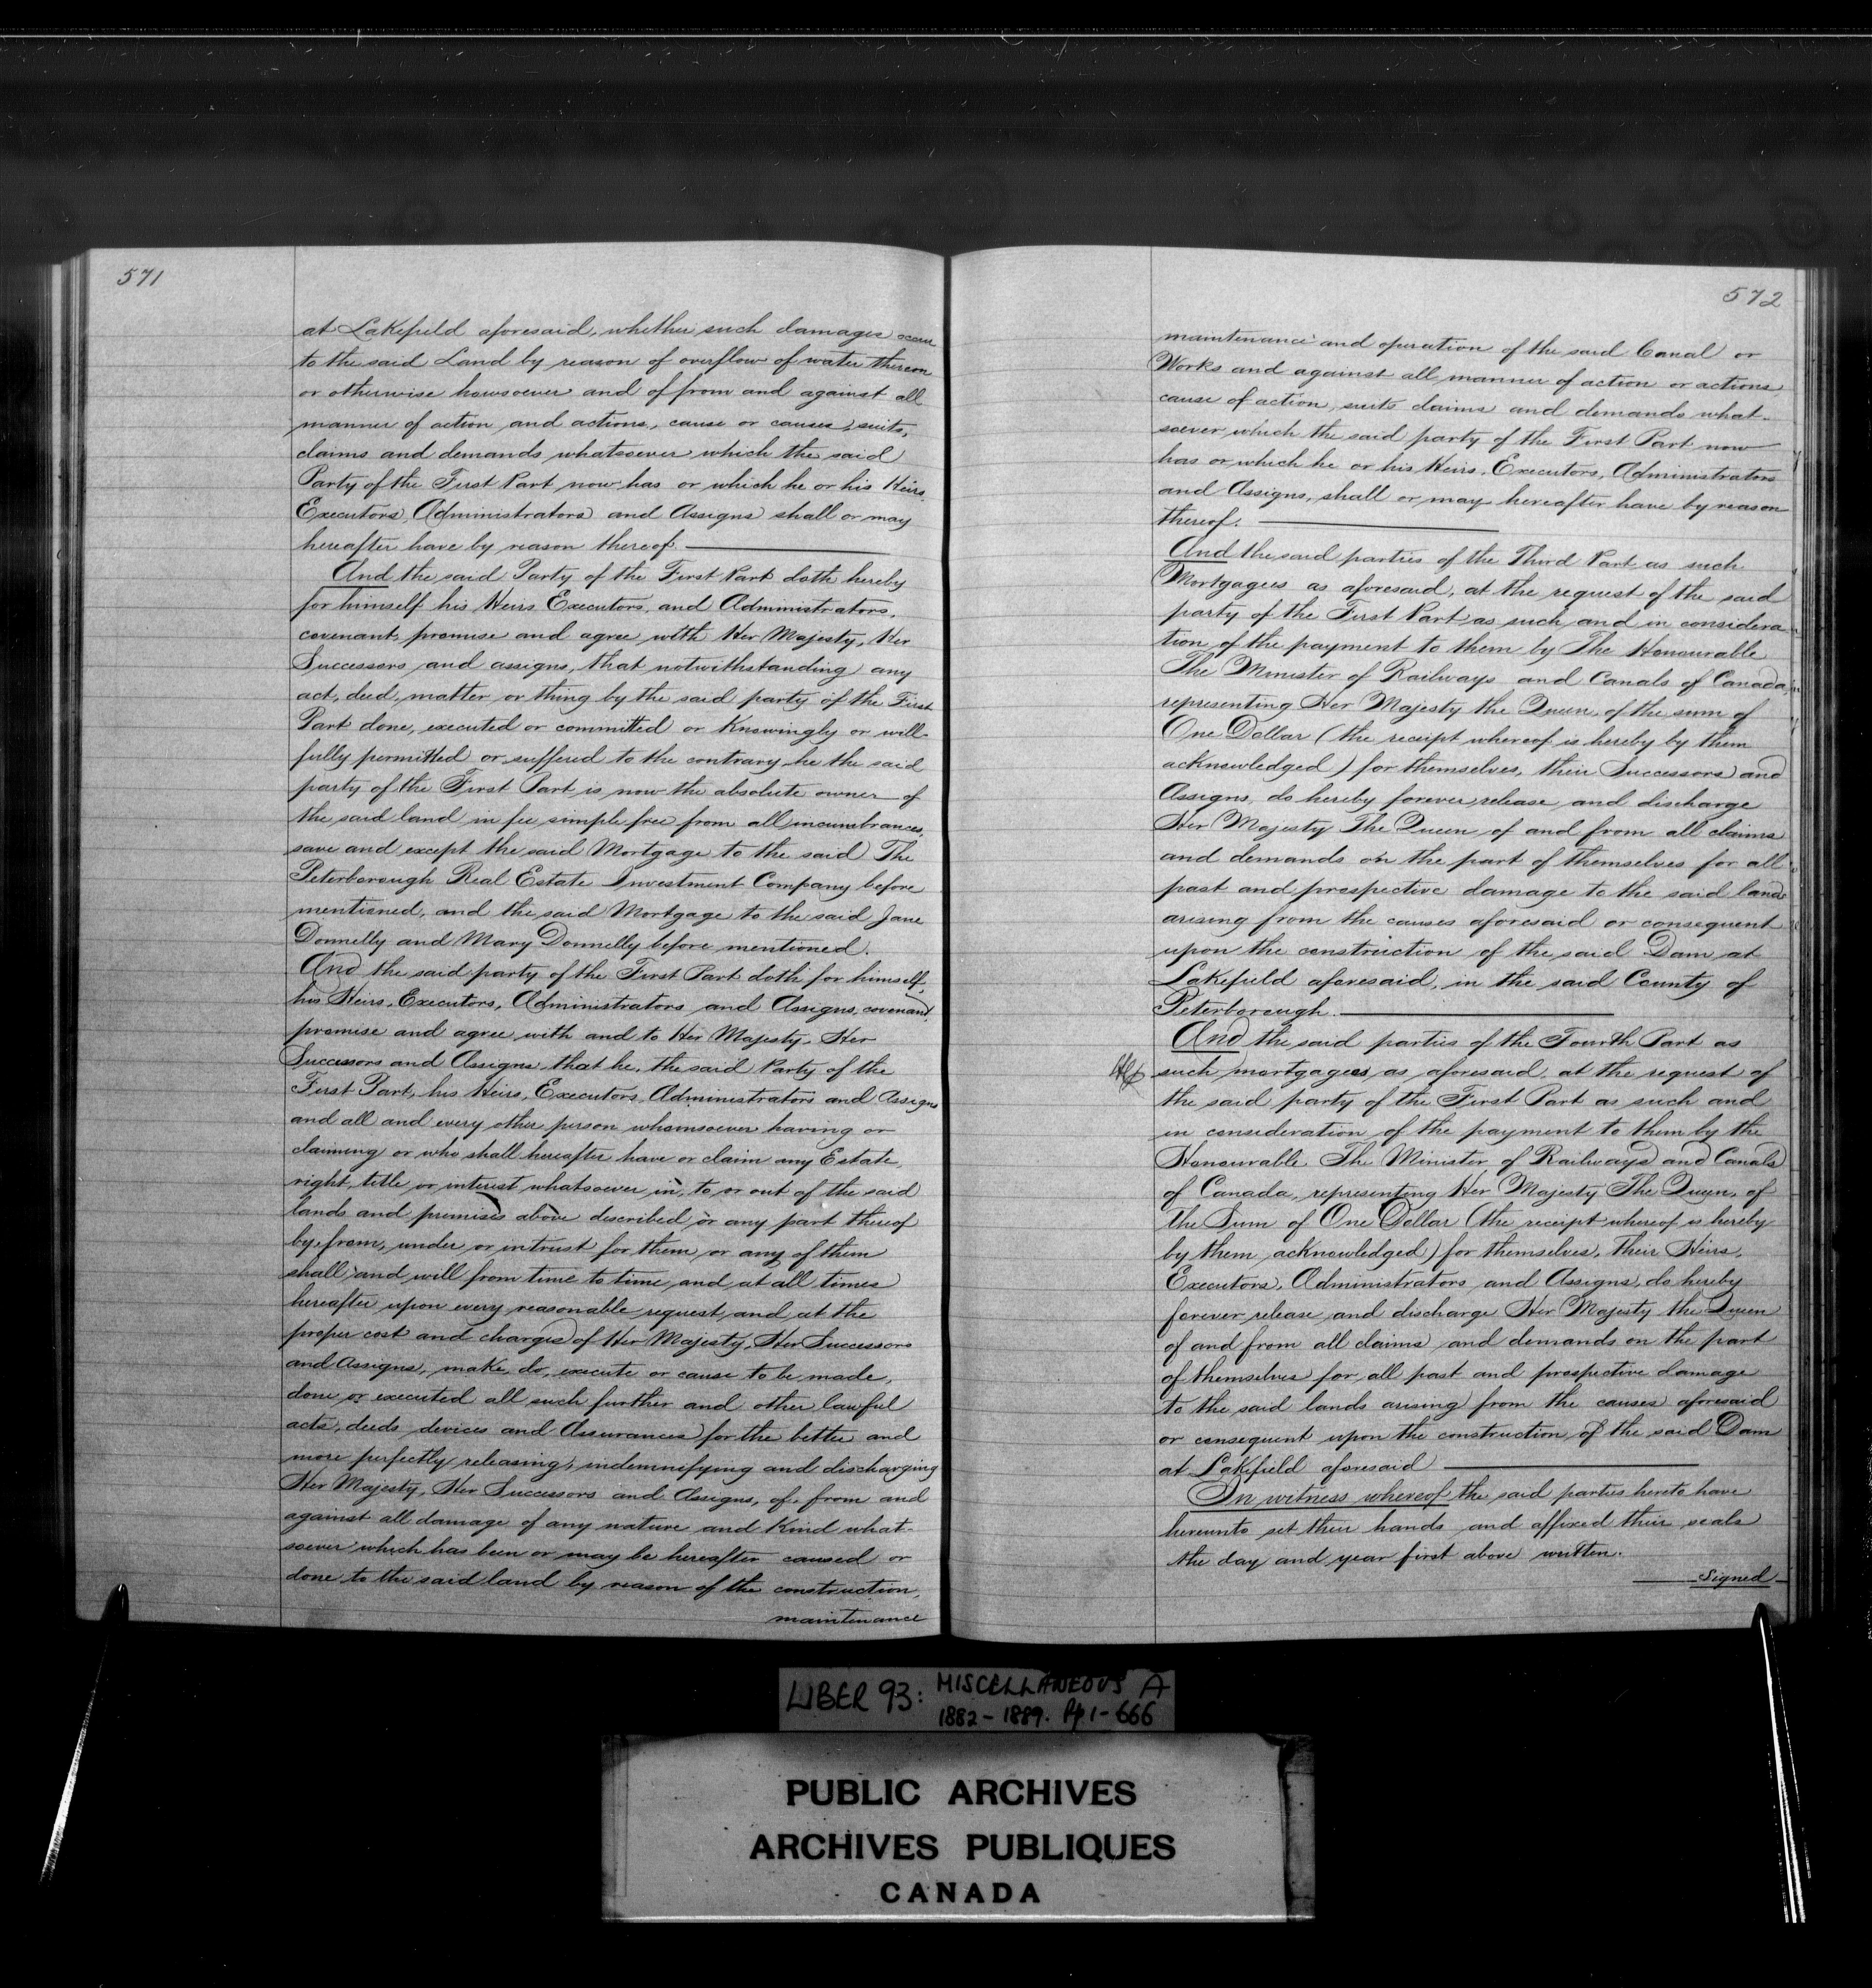 571
at Lakefield aforesaid, whether such damages occur
to the said Land by reason of overflow of water thereon
or otherwise howsoever and of from and against all
manner of action and actions, cause or causes, suits,
claims and demands whatsoever which the said
Party of the First Part now has or which he or his Heirs,
Executors, Administrators and Assigns shall or may
hereafter have by reason thereof.
And the said Party of the First Part doth hereby
for himself his Heirs Executors, and Administrators,
covenant, promise and agree with Her Majesty, Her
Successors and assigns, that notwithstanding any
act, deed, matter or thing by the said party of the First
Part done, executed or committed or Knowingly or will-
fully permitted or suffered to the contrary he the said
party of the First Part is now the absolute owner of
the said land in fee simple free from all incumbrances,
save and except the said Mortgage to the said The
Peterborough Real Estate Investment Company before
mentioned, and the said Mortgage to the said Jane
Donnelly and Mary Donnelly before mentioned.
And the said party of the First Part doth for himself,
his Heirs, Executors, Administrators and Assigns, covenant,
promise and agree with and to Her Majesty, Her
Successors and Assigns that he, the said Party of the
First Part, his Heirs, Executors, Administrators and Assigns
and all and every other person whomsoever having or
claiming or who shall hereafter have or claim any Estate,
right, title or interest whatsoever in, to or out of the said
lands and premises above described or any part thereof
by, from, under or in trust for them or any of them
shall and will from time to time and at all times
hereafter upon every reasonable request and at the
proper cost and charges of Her Majesty, Her Successors
and Assigns, make, do, execute or cause to be made,
done or executed all such further and other lawful
acts, deeds devices and Assurances for the better and
more perfectly releasing, indemnifying and discharging
Her Majesty, Her Successors and Assigns, of, from and
against all damage of any nature and Kind what-
soever which has been or may be hereafter caused or
done to the said land by reason of the construction,
maintenance
572
maintenance and operation of the said Canal or
Works and against all manner of action or actions,
cause of action, suits claims and demands what-
soever which the said party of the First Part now
has or which he or his Heirs, Executors, Administrators
and Assigns, shall or may hereafter have by reason
thereof.
And the said parties of the Third Part as such
Mortgagees as aforesaid, at the request of the said
party of the First Part as such and in considera-
tion of the payment to them by The Honourable
The Minister of Railways and Canals of Canada,
representing Her Majesty the Queen, of the sum of
One Dollar (the receipt whereof is hereby by them
acknowledged) for themselves, their Successors and
Assigns, do hereby forever release and discharge
Her Majesty The Queen of and from all claims
and demands on the part of themselves for all
past and prospective damage to the said land
arising from the causes aforesaid or consequent
upon the construction of the said Dam at
Lakefield aforesaid, in the said County of
Peterborough.
And the said parties of the Fourth Part as
such mortgagees as aforesaid at the request of
the said party of the First Part as such and
in consideration of the payment to them by the
Honourable The Minister of Railways and Canals
of Canada, representing Her Majesty The Queen, of
the Sum of One Dollar (the receipt whereof is hereby
by them acknowledged) for themselves, Their Heirs,
Executors, Administrators and Assigns, do hereby
forever release and discharge Her Majesty the Queen
of and from all claims and demands on the part
of themselves for all past and prospective damage
to the said lands arising from the causes aforesaid
or consequent upon the construction of the said Dam
at Lakefield aforesaid
In witness whereof the said parties hereto have
hereunto set their hands and affixed their seals
the day and year first above written.
Signed
LIBER 93: MISCELLANEOUS A
1882-1889. Pp. 1-666
PUBLIC ARCHIVES
ARCHIVES PUBLIQUES
CANADA